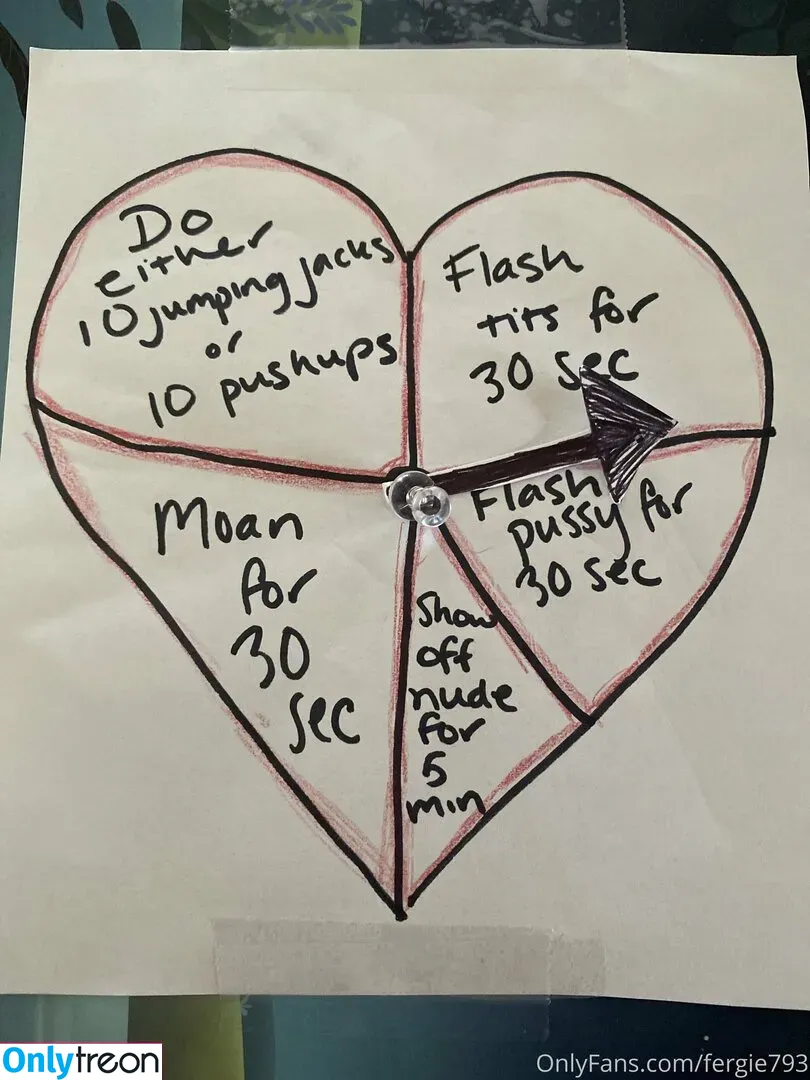 Do
either
10 jumping jacks
or
10 pushups
Flash
tits for
30 sec
Moan
for
30
sec
Flash
pussy for
30 sec
Show
off
nude
for
5
min
Onlytreon
OnlyFans.com/fergie793